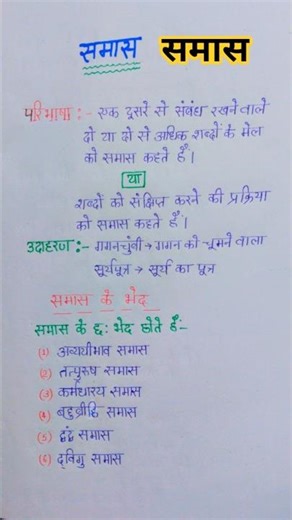 समास समास
परिभाषा :- एक दूसरे से संबंध रखने वाले
दो या दो से अधिक शब्दों के मेल
को समास कहते हैं।
या
शब्दों को संक्षिप्त करने की प्रक्रिया
को समास कहते हैं।
उदाहरण :- गगनचुंबी → गगन को चूमने वाला
सूर्यपुत्र → सूर्य का पुत्र
समास के भेद
समास के छः भेद होते हैं:-
(1) अव्ययीभाव समास
(2) तत्पुरुष समास
(3) कर्मधारय समास
(4) बहुव्रीहि समास
(5) द्वंद्व समास
(6) द्विगु समास